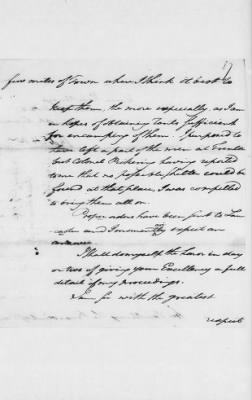 17
few miles of Town where I think it best to
keep them, the more especially, as I am
in hopes of obtaining Tents sufficient
for encamping of them. I purposed to
have left a part of the men at Trenton
but Colonel Pickering having reported
to me that no possible shelter could be
found at that place, I was compelled
to bring them all on.
Proper orders have been sent to Lan
and I momently expect an
answer.
I shall do myself the honor in a day
or two of giving your Excellency a full
detail of my proceedings.
I am Sir with the greatest
respect